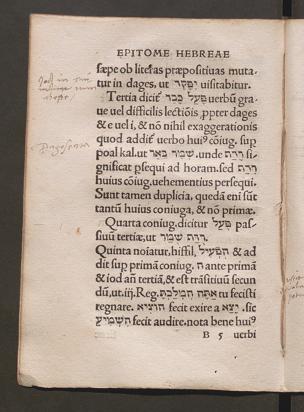 EPITOME HEBREAE
sæpe ob literas præpositiuas muta-
tur in dages, ut יִפָּקֵר uisitabitur.
Tertia dicit פִּעֵל כָּבֵד uerbũ gra
ue uel difficilis lectiõis ꝓpter dages
& e uel i, & nõ nihil exaggerationis
quod addit uerbo huiꝰ cõiug. sup
poal kal. ut . unde רָדַף si-
gnificat ꝑsequi ad horam. sed רִדֵּף
huius cõiug. uehementius persequi.
Sunt tamen duplicia, quædã eni sũt
tantũ huius coniuga, & nõ primæ.
Quarta coniug. dicitur פֻּעַל pas-
siuũ tertiæ, ut
Quinta noiatur, hiffil, הִפְעִיל & ad
dit sup primã coniug. ה ante primã
& iod añ tertiã, & est trãsitiuũ secun
dũ, ut. iij. Reg. אַתָּה הִמְלַכְתָּ tu fecisti
regnare. הוֹצִיא fecit exire a יָצָא. sic
הִשְׁמִיעַ fecit audire. nota bene huiꝰ
B 5 uerbi